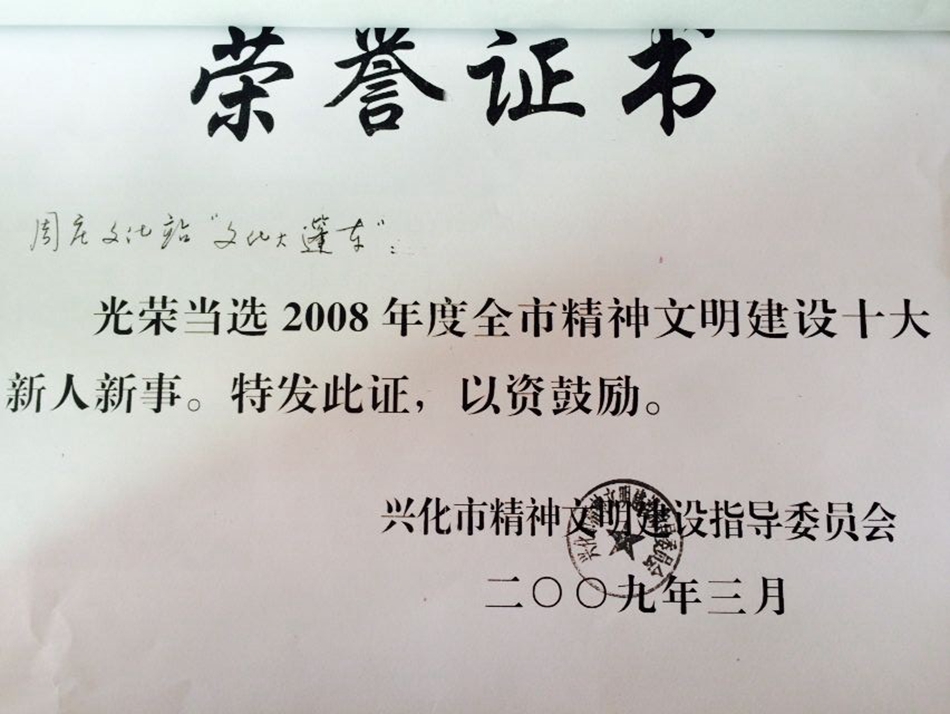 荣誉证书
周庄文化站"文化大篷车"：
光荣当选 2008 年度全市精神文明建设十大
新人新事。特发此证，以资鼓励。
兴化市精神文明建设指导委员会
兴化市精神文明建设指导委员会
二〇〇九年三月